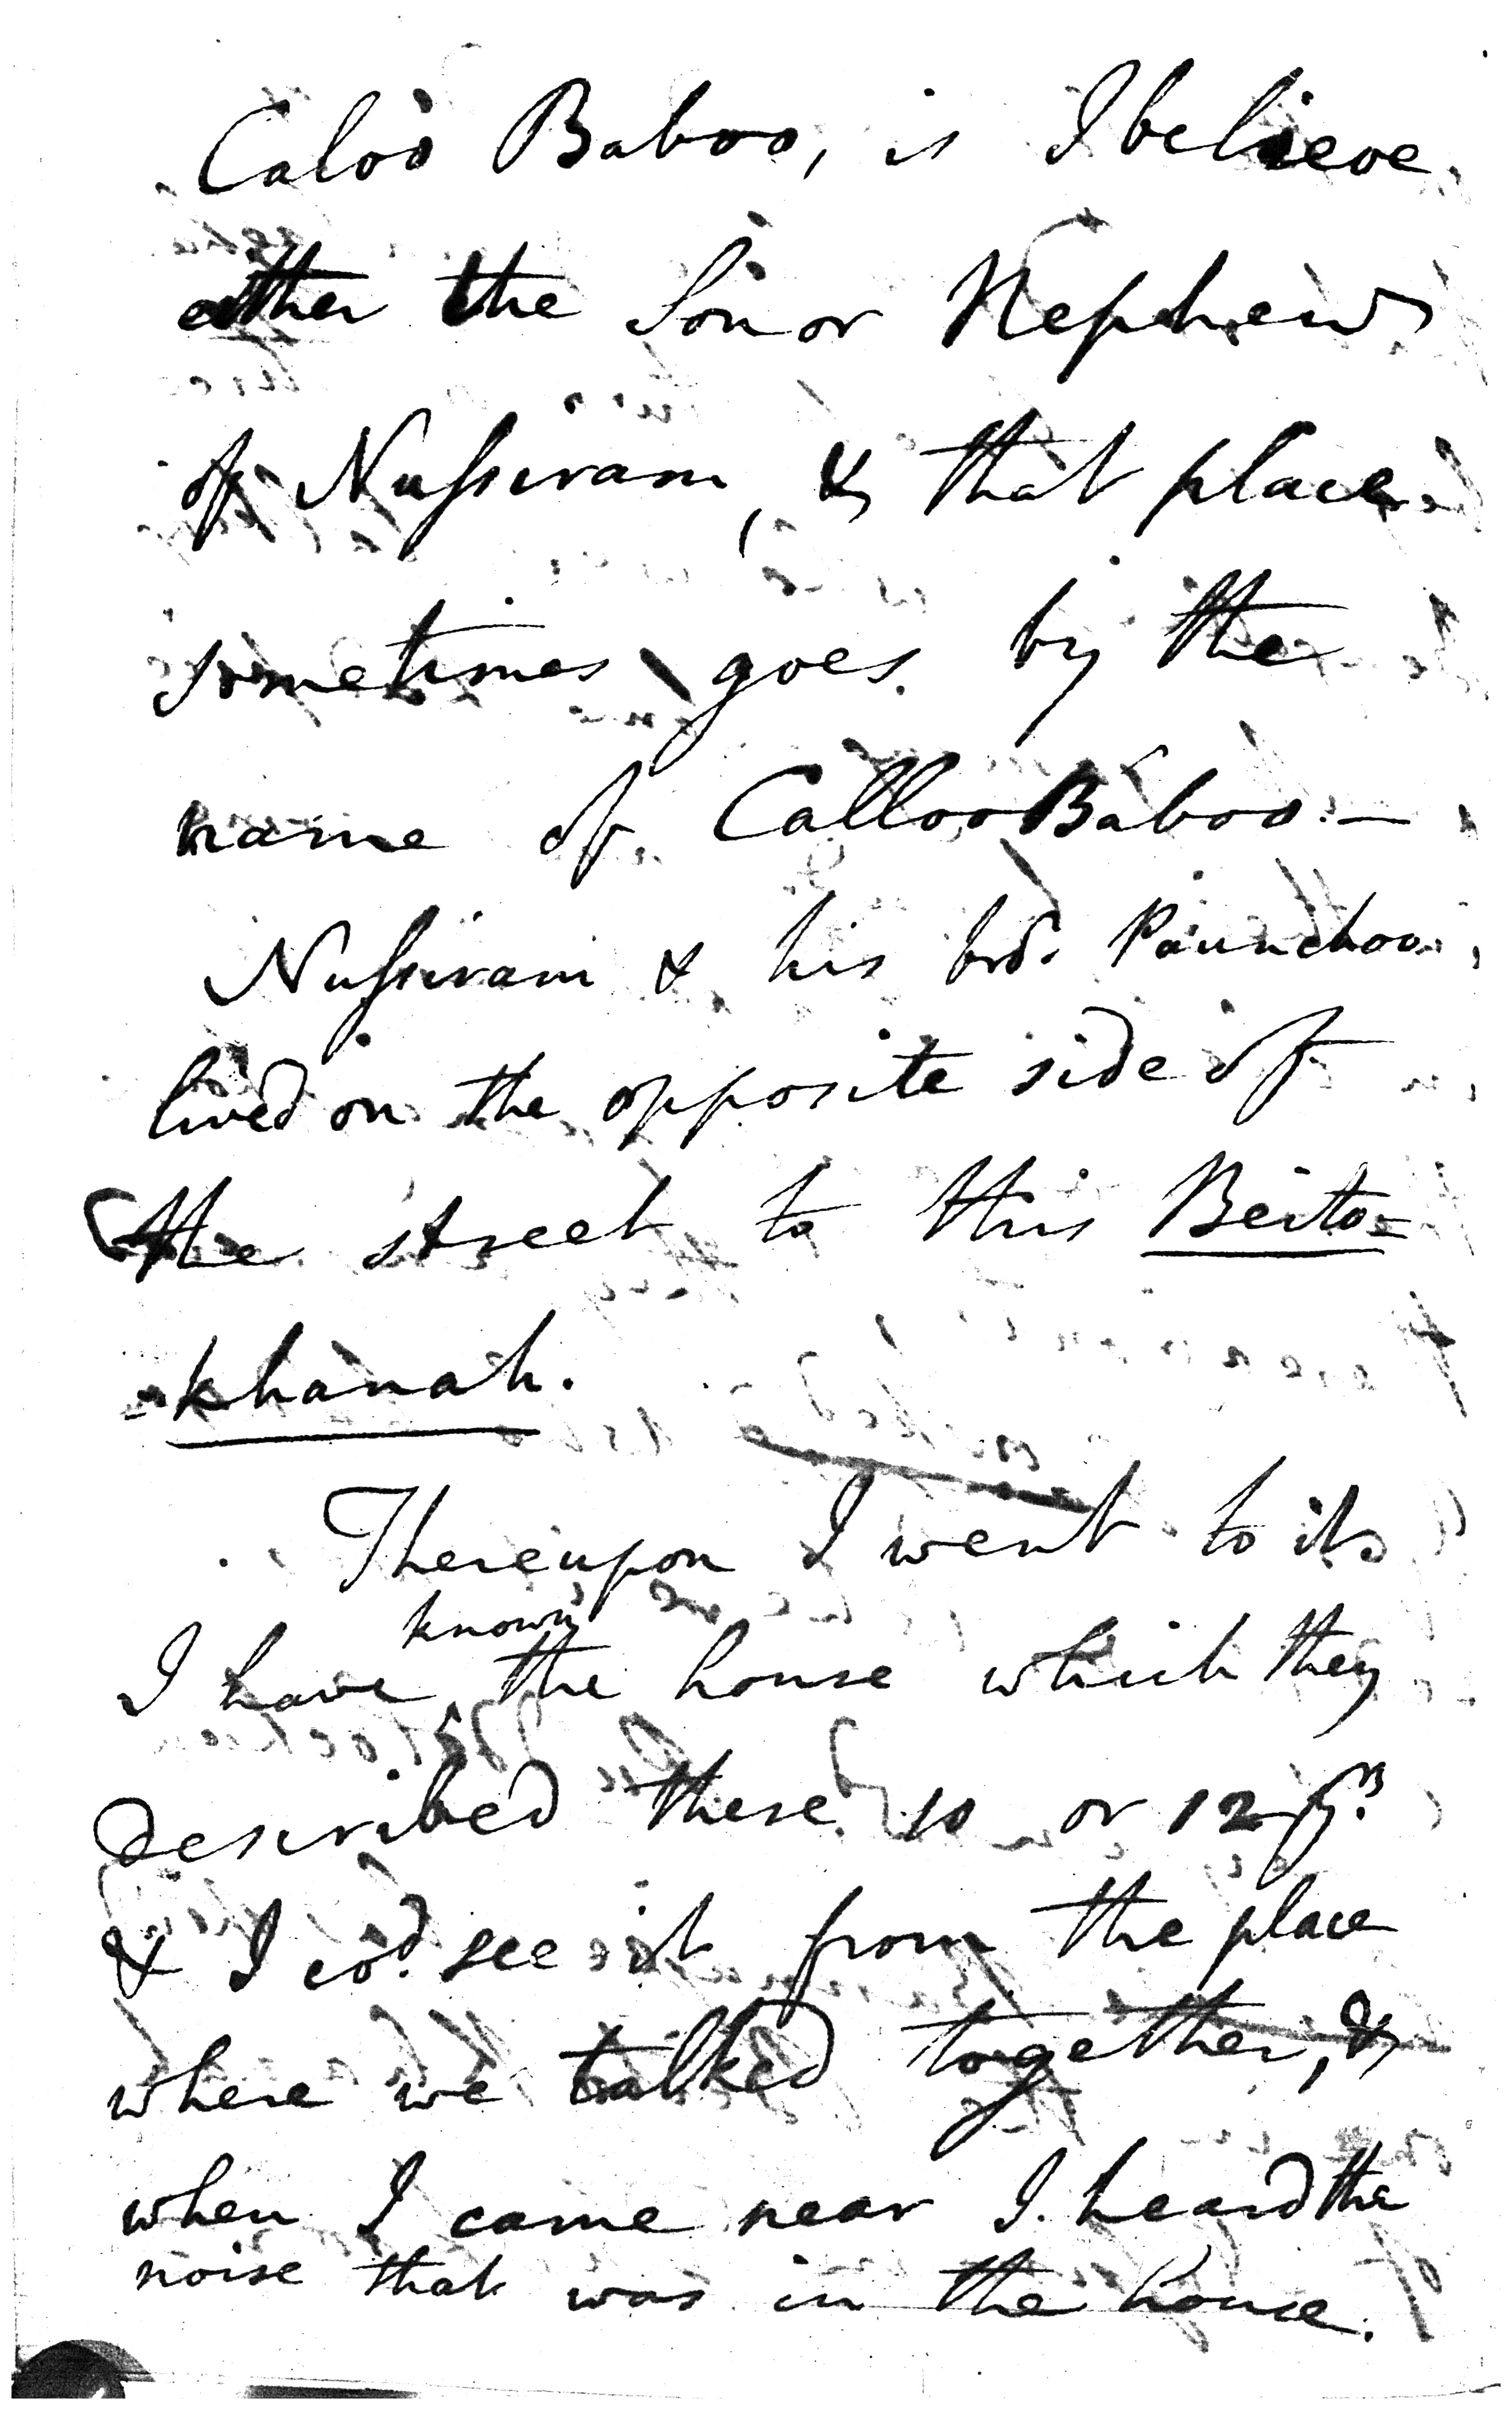 Caloo Baboo, is I believe
either the Son or Nephew
of Nussiram, & that place
sometimes goes by the
name of Calloo Baboo. —
Nussiram & his brd. Paunchoo
lived on the opposite side of
the street to this Beito=
-khanah.
Thereupon I went to it.
known
I have the house which they
described these 10 or 12 yrs.
& I cod. see it from the place
where we talked together, &
when I came near I heard the
noise that was in the house.